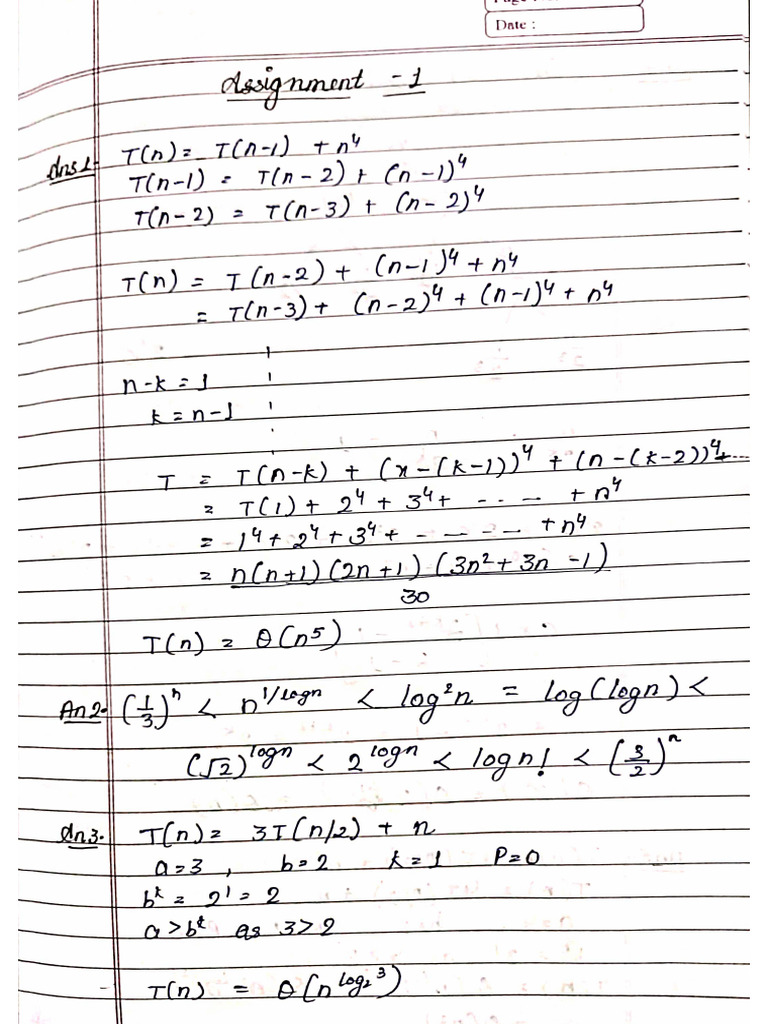 Date :
Assignment - 1
Ans1. T(n) = T(n-1) + n⁴
T(n-1) = T(n-2) + (n-1)⁴
T(n-2) = T(n-3) + (n-2)⁴
T(n) = T(n-2) + (n-1)⁴ + n⁴
= T(n-3) + (n-2)⁴ + (n-1)⁴ + n⁴
n-k = 1
k = n-1
T = T(n-k) + (n-(k-1))⁴ + (n-(k-2))⁴+...
= T(1) + 2⁴ + 3⁴ + - - - - + n⁴
= 1⁴ + 2⁴ + 3⁴ + - - - - - + n⁴
= n(n+1)(2n+1)(3n²+3n-1)
30
T(n) = θ(n⁵)
An2. (1/3)ⁿ < n^(1/logn) < log²n = log(logn) <
(√2)^(logn) < 2^(logn) < logn! < (3/2)ⁿ
An3. T(n) = 3T(n/2) + n
a=3, b=2 k=1 P=0
bᵏ = 2¹ = 2
a>bᵏ as 3>2
T(n) = θ(n^(log₂3))